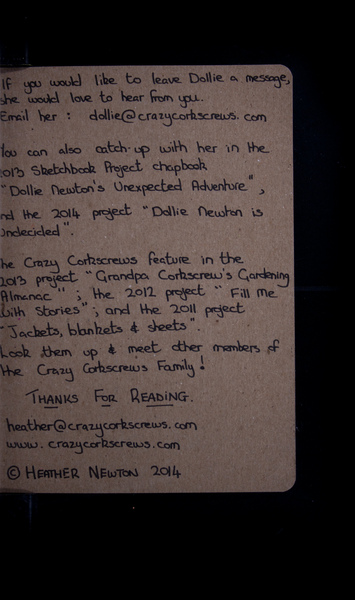 If you would like to leave Dollie a message,
she would love to hear from you.
Email her : dollie@crazycorkscrews.com
You can also catch-up with her in the
2013 Sketchbook Project chapbook
"Dollie Newton's Unexpected Adventure",
and the 2014 project "Dollie Newton is
Undecided".
The Crazy Corkscrews feature in the
2013 project "Grandpa Corkscrew's Gardening
Almanac"; the 2012 project "Fill me
with Stories"; and the 2011 project
"Jackets, blankets & sheets".
Look them up & meet other members of
the Crazy Corkscrews Family!
THANKS FOR READING.
heather@crazycorkscrews.com
www.crazycorkscrews.com
© HEATHER NEWTON 2014